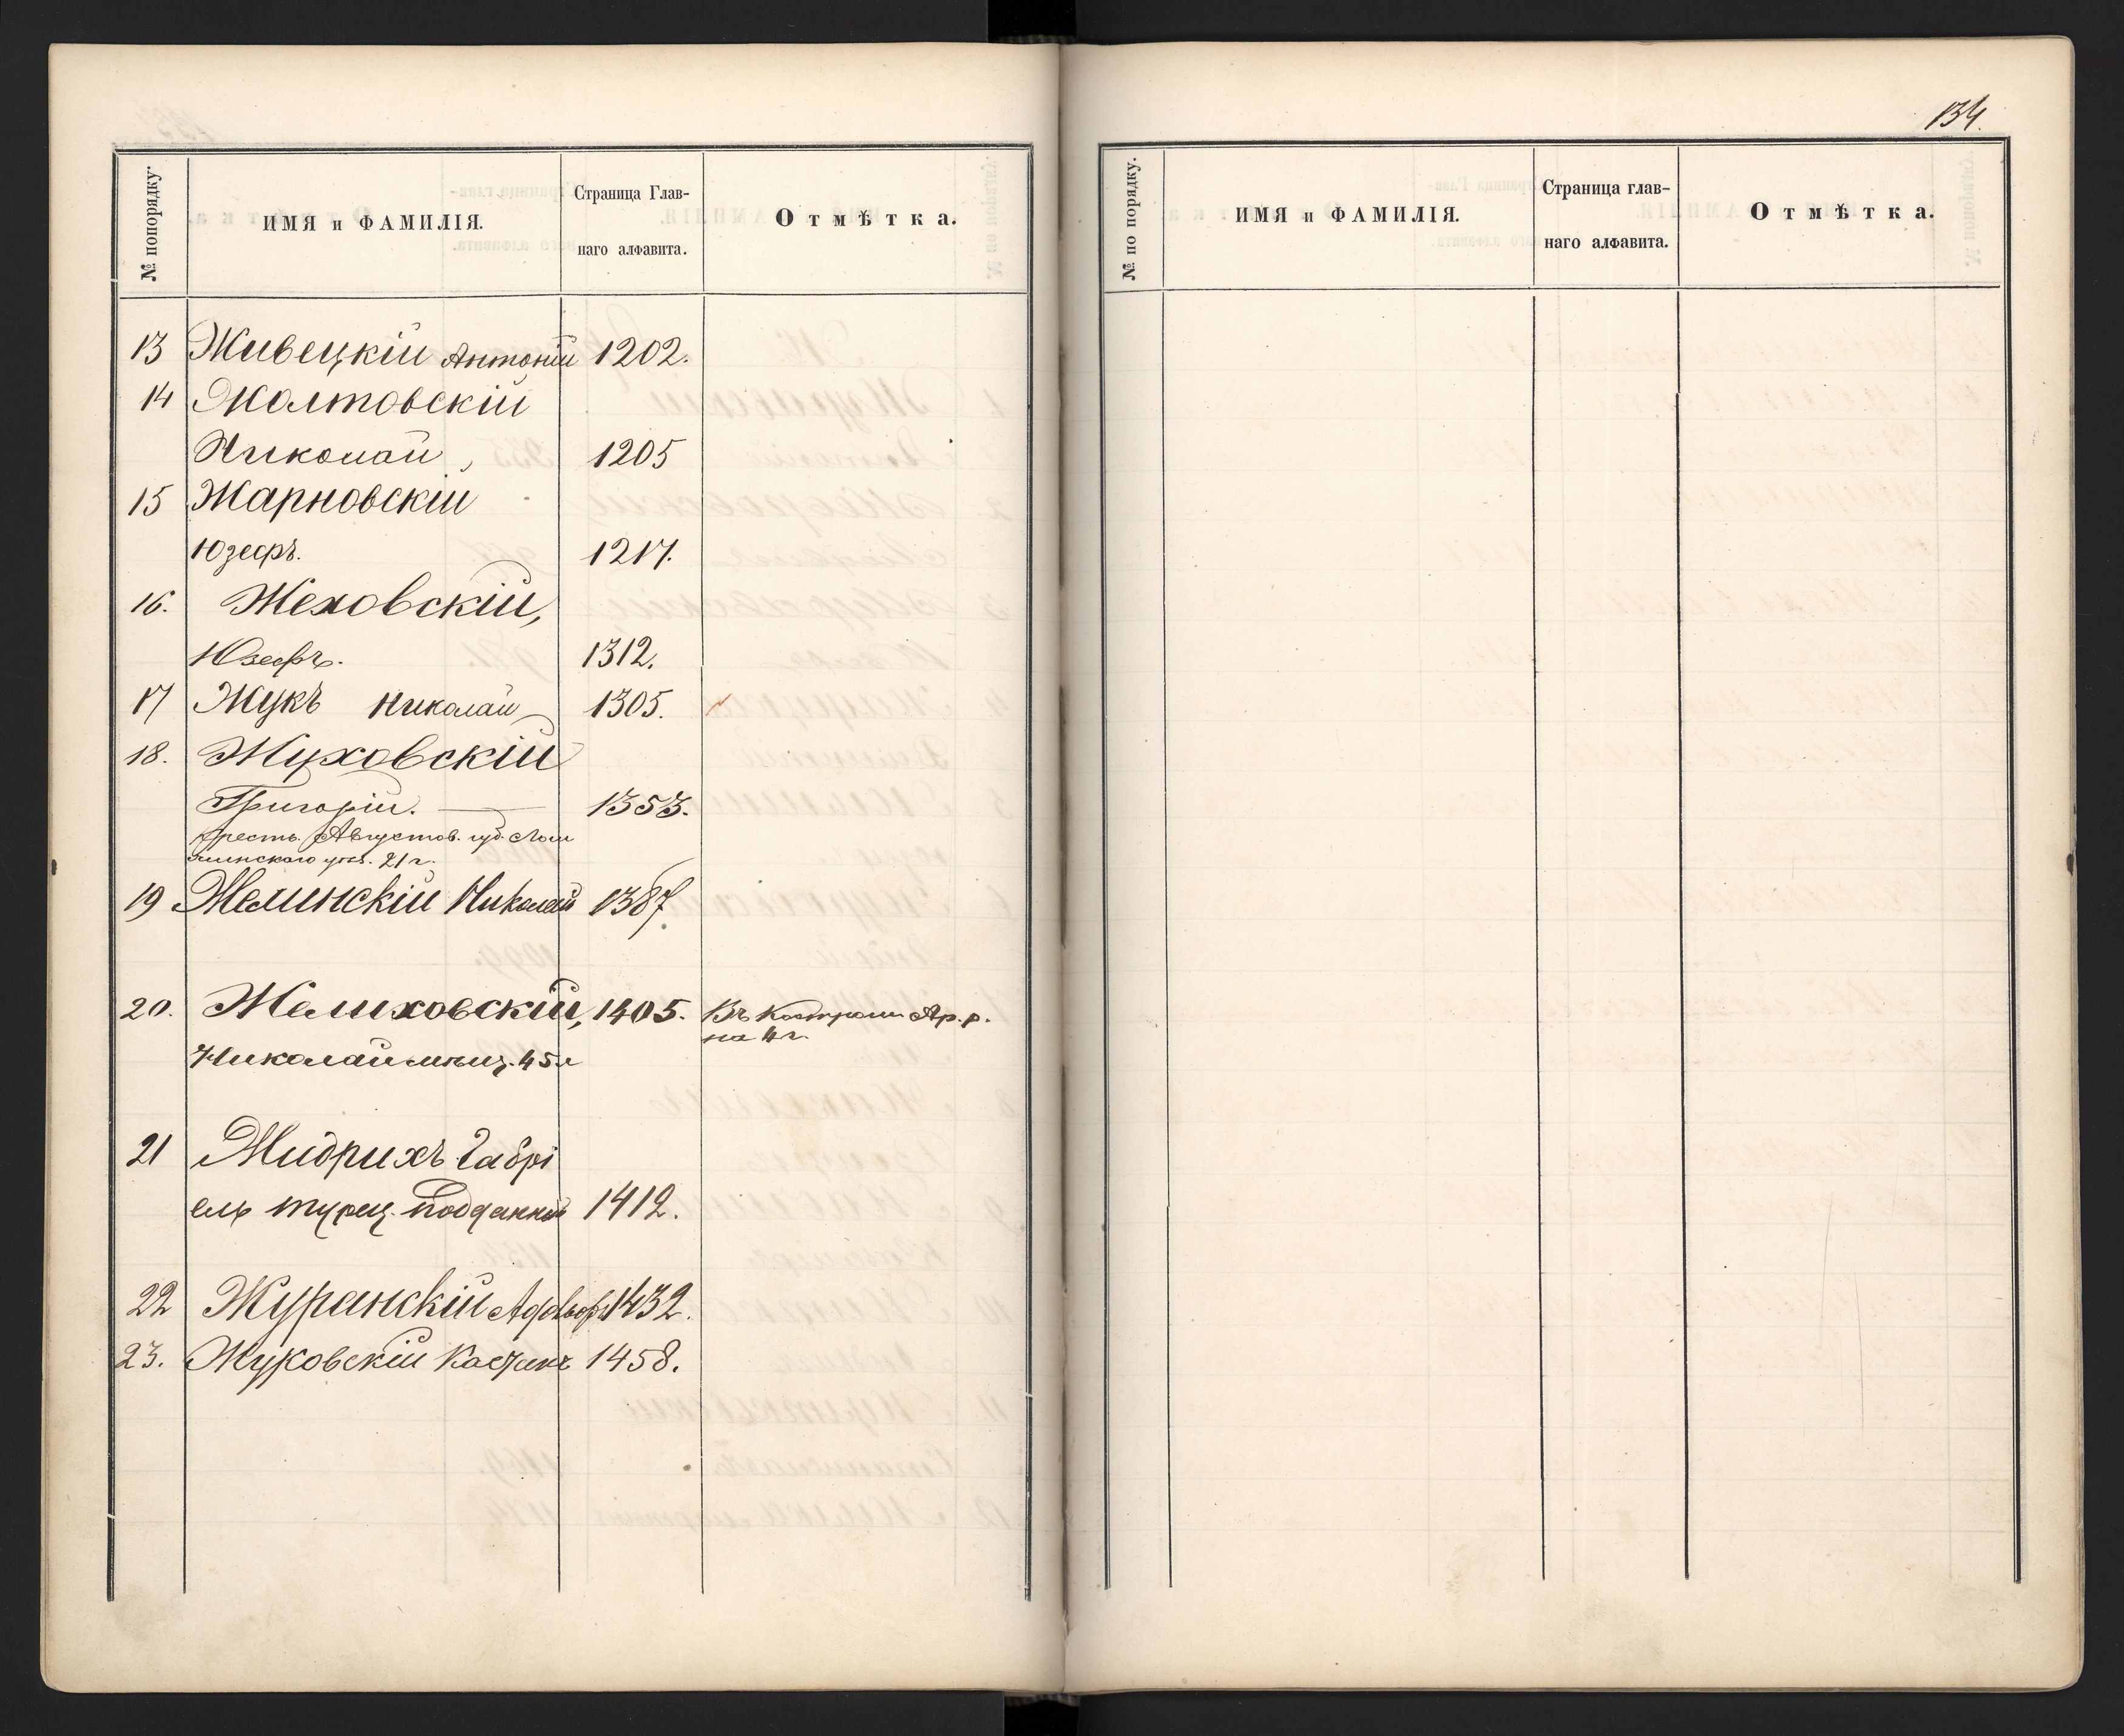 134.
№ попорядку.
ИМЯ и ФАМИЛІЯ.
Страница Глав-
наго алфавита.
Отмѣтка.
13 Живецкій Антоній 1202.
14 Жолтовскій
Николай 1205
15 Жарновскій
Юзефъ. 1217.
16. Жеховскій,
Юзефъ. 1312.
17 Жукъ Николай 1305.
18. Жуховскій
Григорій. 1353.
Крестъ. Августов. губ. Лом
жинскаго уѣз. 21 г.
19 Желинскій Николай 1387.
20. Желиховскій, 1405. Въ Костром. Ар. р.
на 4 г.
Николай мѣщ. 45 л
21 Жидрихъ Габрі
ель турец. подданный 1412.
22 Журанскій 1432.
23. Жуковскій 1458.
№ по порядку.
ИМЯ и ФАМИЛІЯ.
Страница глав-
наго алфавита.
Отмѣтка.